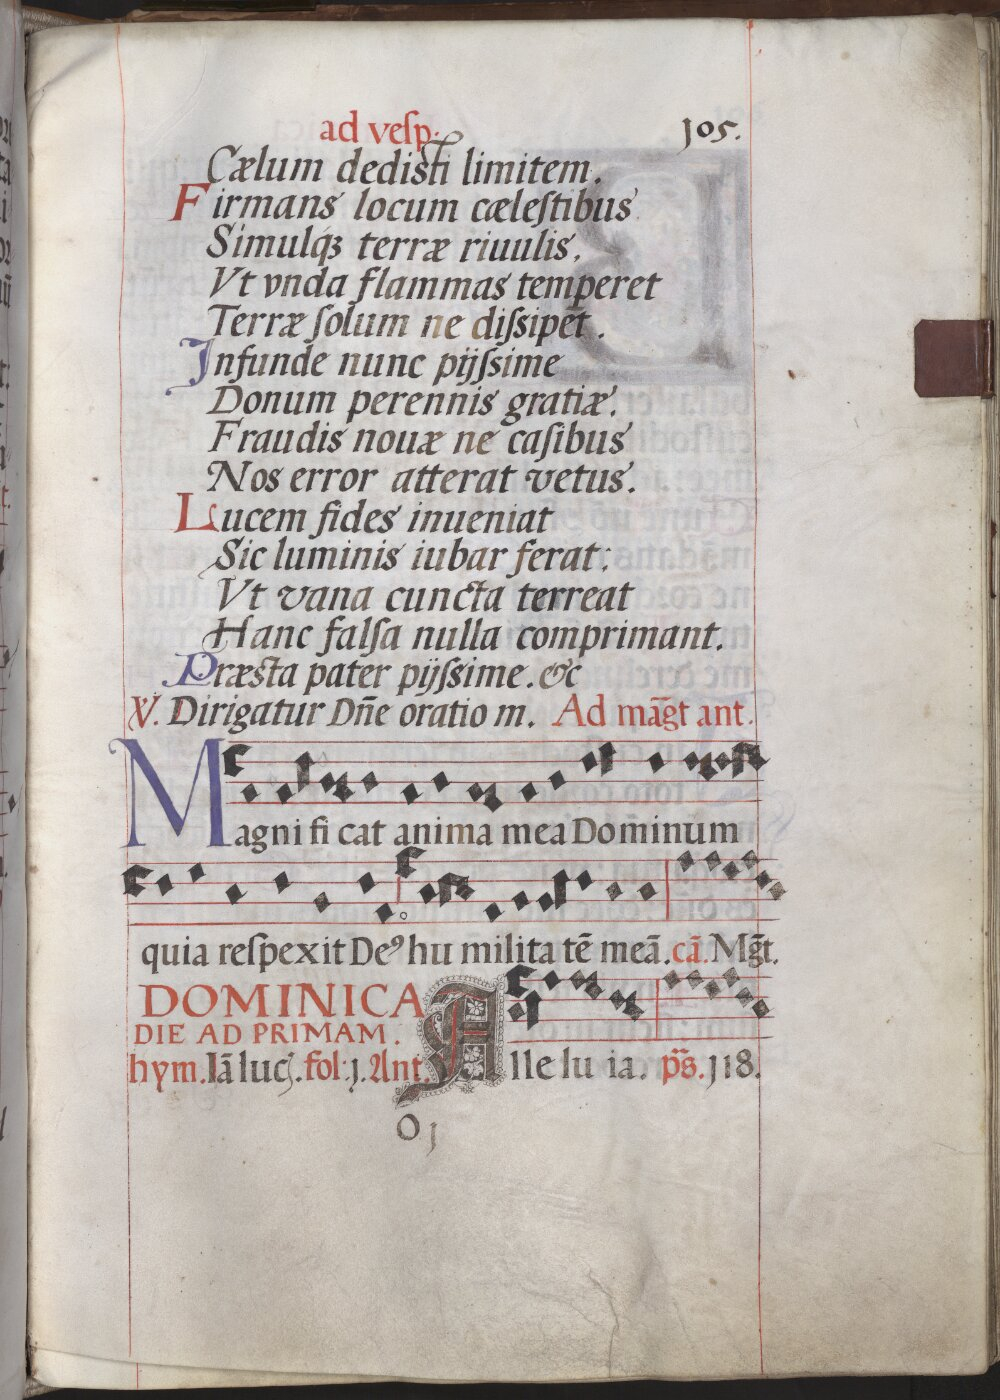 ad vesp. 105.
Cælum dedisti limitem.
Firmans locum cælestibus
Simulqȝ terræ riuulis,
Vt vnda flammas temperet
Terræ solum ne dissipet.
Infunde nunc pijssime
Donum perennis gratiæ,
Fraudis nouæ ne casibus
Nos error atterat vetus.
Lucem fides inueniat
Sic luminis iubar ferat:
Vt vana cuncta terreat
Hanc falsa nulla comprimant.
Præsta pater pijssime. &c
V. Dirigatur Dñe oratio m. Ad māgt ant.
Magni fi cat anima mea Dominum
quia respexit De9 hu milita tē meā. cā. Mḡt.
DOMINICA
DIE AD PRIMAM.
hym. Iā luc. fol: j. Ant. Alle lu ia. ps. 118.
O j